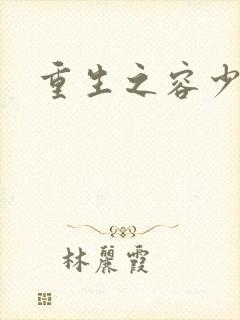 重生之容少
林麗霞